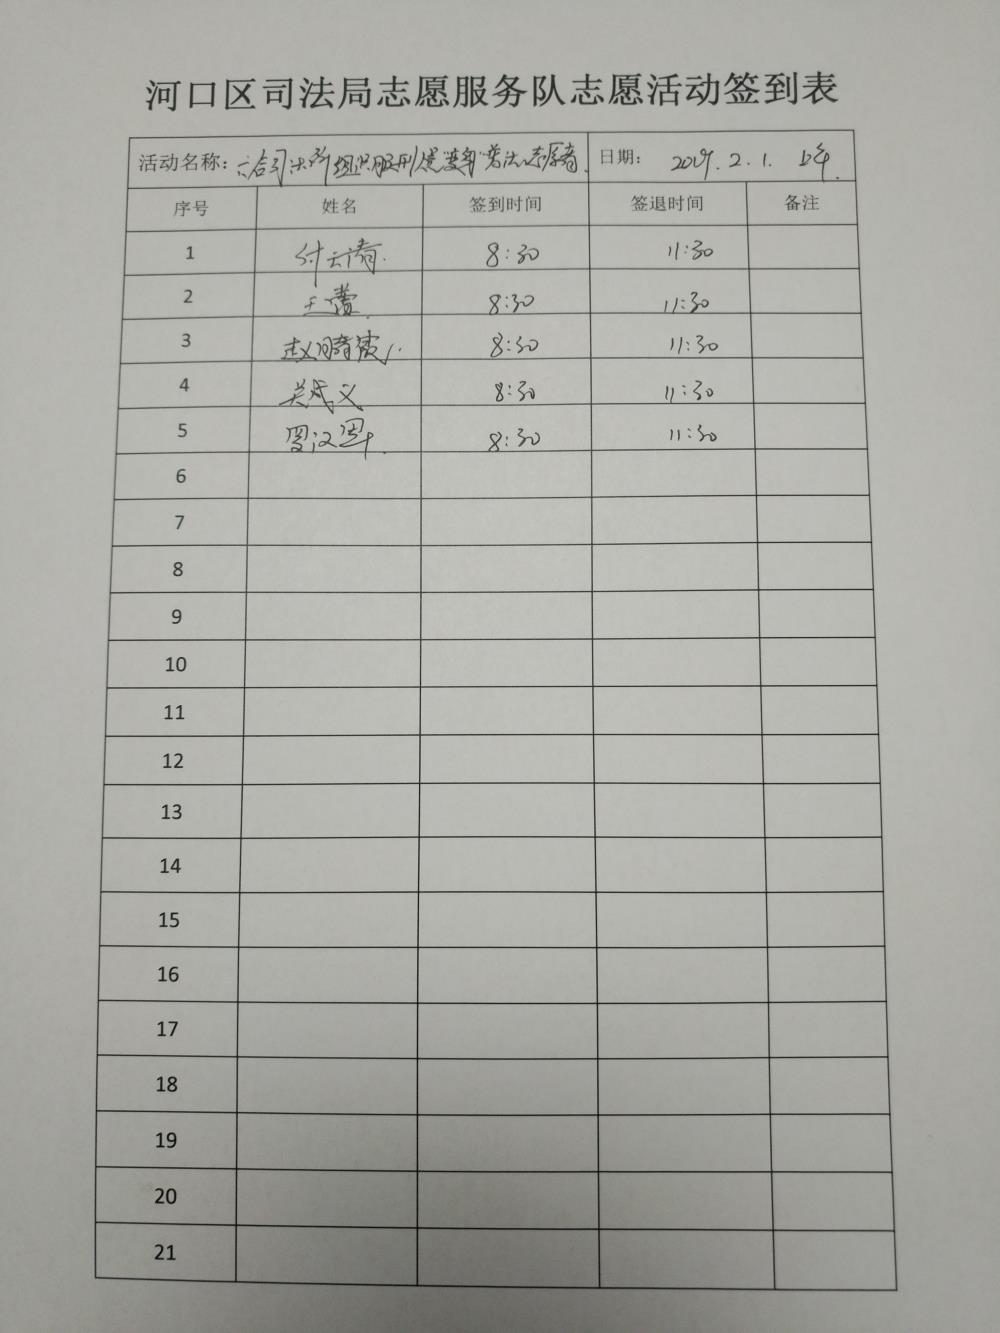 河口区司法局志愿服务队志愿活动签到表
活动名称：六合司法所组织服刑人员变身"普法志愿者" 日期： 2019.2.1. 上午
序号 姓名 签到时间 签退时间 备注
1 付云清 8:30 11:30
2 王蕾 8:30 11:30
3 赵晴霞 8:30 11:30
4 吴成义 8:30 11:30
5 罗汉军 8:30 11:30
6
7
8
9
10
11
12
13
14
15
16
17
18
19
20
21